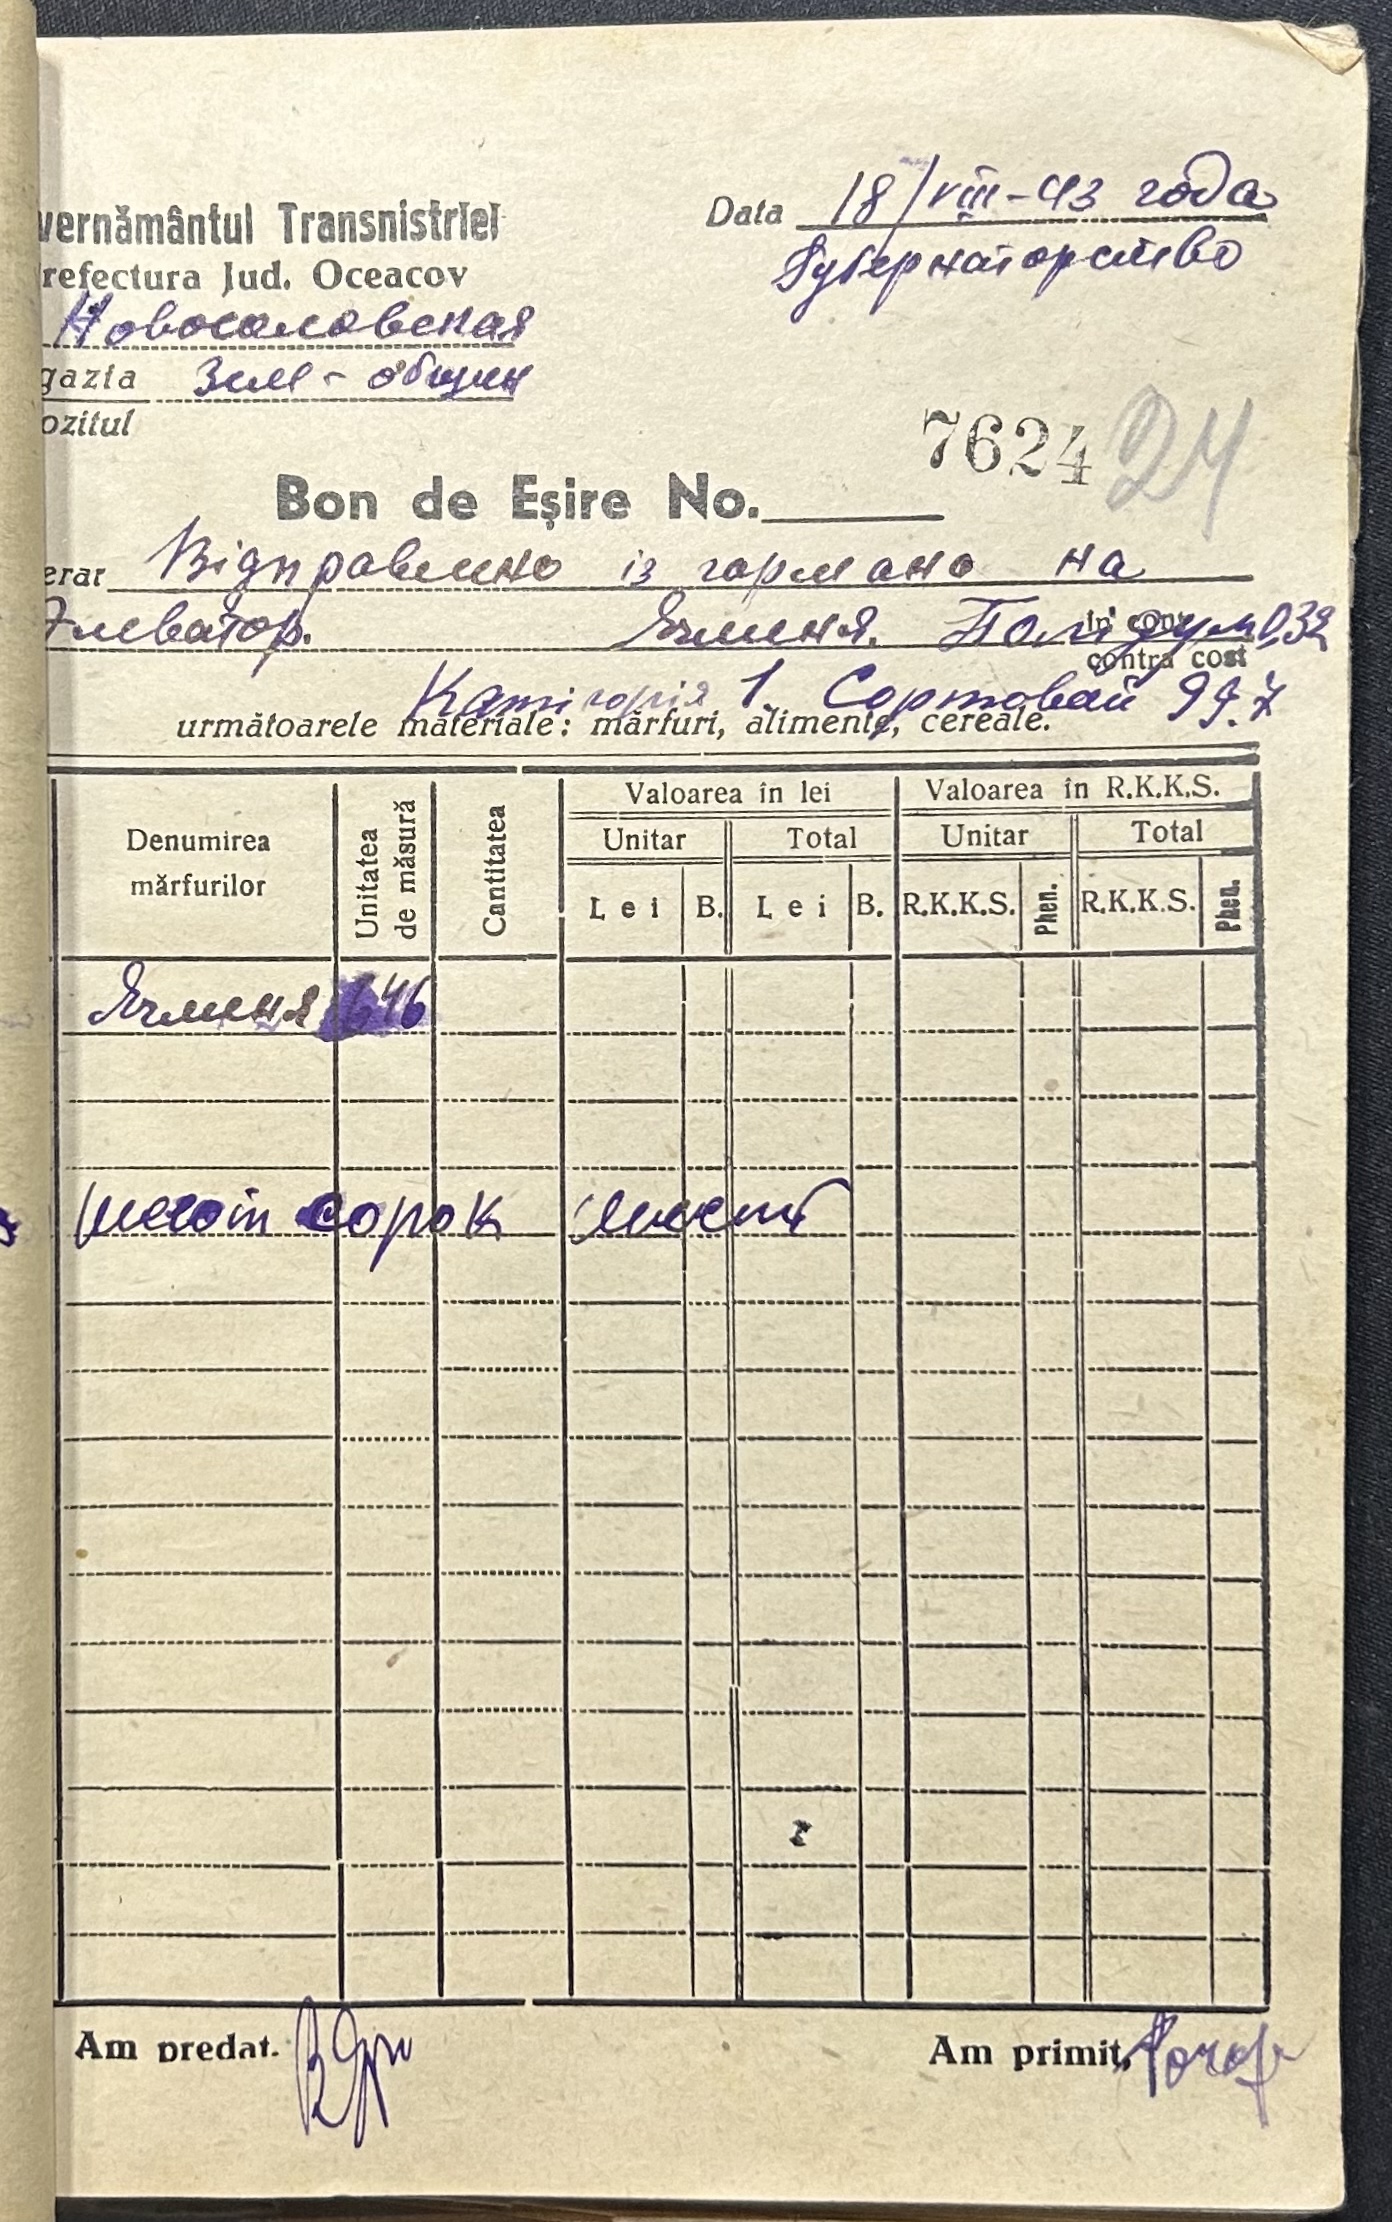 vernământul Transnistriei
Data 18/VIII-43 года
refectura Jud. Oceacov
Губернаторство
Новосоловская
gazia Зем-общин
ozitul
7624 24
Bon de Eșire No.
erar Відправлено із гармана на
Элеватор. Ячменя. Полідум 0,32
in cont
contra cost
Катігорія 1. Сортовай 99.7
următoarele materiale: mărfuri, alimente, cereale.
Denumirea mărfurilor
Unitatea de măsură
Cantitatea
Valoarea în lei
Valoarea în R.K.K.S.
Unitar Total Unitar Total
Lei B. Lei B. R.K.K.S. Phen. R.K.K.S. Phen.
Ячменя 646
шесот сорок шесть
Am predat.
Am primit.